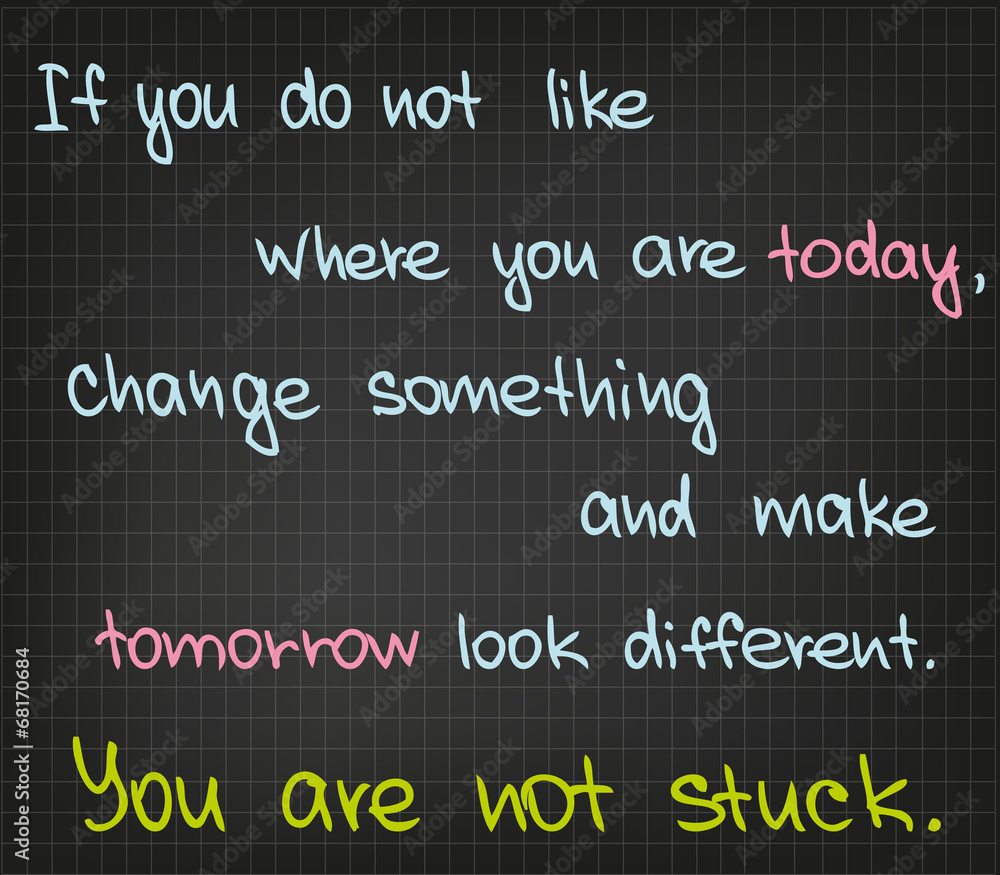 If you do not like
where you are today,
change something
and make
tomorrow look different.
You are not stuck.
Adobe Stock | #68170684